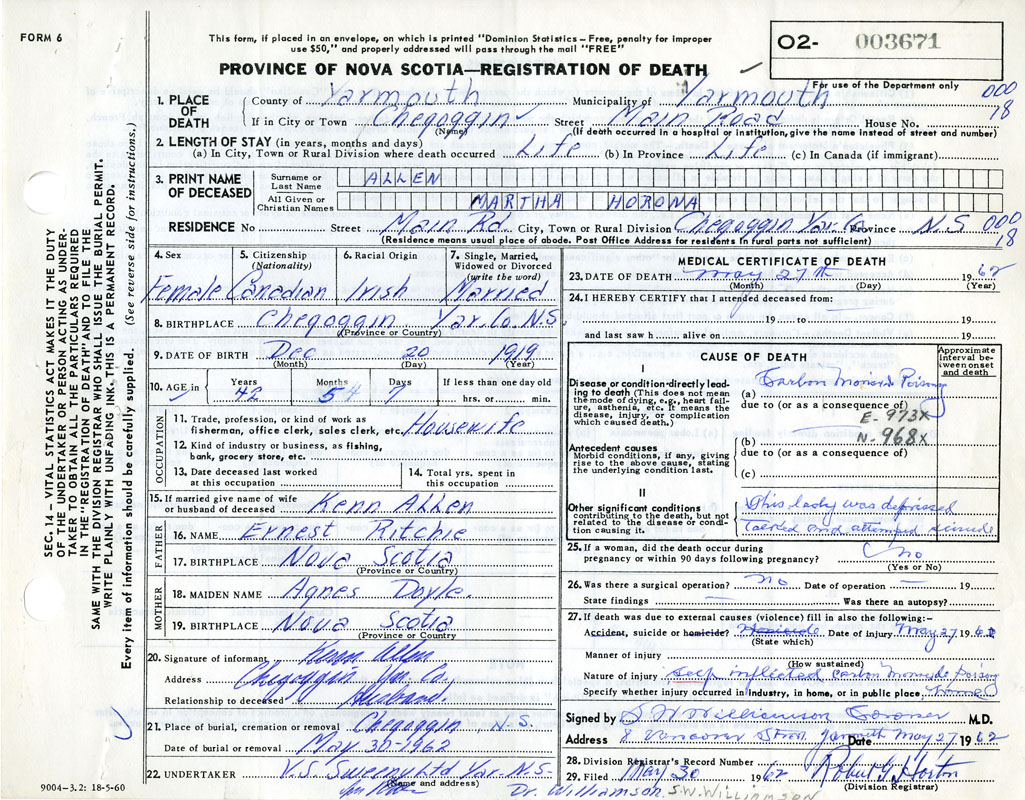 FORM 6
This form, if placed in an envelope, on which is printed "Dominion Statistics – Free, penalty for improper
use $50," and properly addressed will pass through the mail "FREE"
PROVINCE OF NOVA SCOTIA—REGISTRATION OF DEATH
O2- 003671
For use of the Department only
000
18
1. PLACE OF DEATH
County of Yarmouth Municipality of Yarmouth
If in City or Town Chegoggin Street Main Road House No.
(Name) (If death occurred in a hospital or institution, give the name instead of street and number)
2. LENGTH OF STAY (in years, months and days)
(a) In City, Town or Rural Division where death occurred Life (b) In Province Life (c) In Canada (if immigrant)
3. PRINT NAME OF DECEASED
Surname or Last Name ALLEN
All Given or Christian Names MARTHA HORONA
RESIDENCE No Street Main Rd. City, Town or Rural Division Chegoggin Yar. Co Province N.S 000
18
(Residence means usual place of abode. Post Office Address for residents in rural parts not sufficient)
4. Sex Female
5. Citizenship (Nationality) Canadian
6. Racial Origin Irish
7. Single, Married, Widowed or Divorced (write the word) Married
8. BIRTHPLACE Chegoggin Yar. Co. N.S.
(Province or Country)
9. DATE OF BIRTH Dec 20 1919
(Month) (Day) (Year)
10. AGE in Years 42 Months 5 Days 7 If less than one day old
hrs. or min.
OCCUPATION
11. Trade, profession, or kind of work as
fisherman, office clerk, sales clerk, etc. Housewife
12. Kind of industry or business, as fishing,
bank, grocery store, etc.
13. Date deceased last worked at this occupation
14. Total yrs. spent in this occupation
15. If married give name of wife
or husband of deceased Kenn Allen
FATHER
16. NAME Ernest Ritchie
17. BIRTHPLACE Nova Scotia
(Province or Country)
MOTHER
18. MAIDEN NAME Agnes Doyle.
19. BIRTHPLACE Nova Scotia
(Province or Country)
20. Signature of informant Kenn Allen
Address Chegoggin Yar. Co.
Relationship to deceased Husband.
21. Place of burial, cremation or removal Chegoggin N.S.
Date of burial or removal May 30-1962
22. UNDERTAKER V.S. Sweeny Ltd Yar. N.S.
(Name and address)
9004-3.2: 18-5-60
MEDICAL CERTIFICATE OF DEATH
23. DATE OF DEATH May 27th 1962
(Month) (Day) (Year)
24. I HEREBY CERTIFY that I attended deceased from:
19 to 19
and last saw h alive on 19
CAUSE OF DEATH
Approximate interval between onset and death
I
Disease or condition directly leading to death (This does not mean the mode of dying, e.g., heart failure, asthenia, etc. It means the disease, injury, or complication which caused death.)
(a) Carbon Monoxide Poisong
due to (or as a consequence of)
E-973X
N-968X
Antecedent causes
Morbid conditions, if any, giving rise to the above cause, stating the underlying condition last.
(b)
due to (or as a consequence of)
(c)
II
Other significant conditions
contributing to the death, but not related to the disease or condition causing it.
This lady was depressed
and attempted suicide
25. If a woman, did the death occur during
pregnancy or within 90 days following pregnancy? No
(Yes or No)
26. Was there a surgical operation? No Date of operation — 19
State findings — Was there an autopsy?
27. If death was due to external causes (violence) fill in also the following:–
Accident, suicide or homicide? Date of injury May 27 1962
(State which)
Manner of injury
(How sustained)
Nature of injury self inflicted carbon monoxide Poisong
Specify whether injury occurred in industry, in home, or in public place. Home
Signed by S W Williamson Coroner M.D.
Address 8 Vancouver Street Yarmouth Date May 27 1962
28. Division Registrar's Record Number
29. Filed May 30 1962 Robert G Horton
(Division Registrar)
Dr. Williamson. S.W. WILLIAMSON
SEC. 14 – VITAL STATISTICS ACT MAKES IT THE DUTY
OF THE UNDERTAKER OR PERSON ACTING AS UNDER-
TAKER TO OBTAIN ALL THE PARTICULARS REQUIRED
IN THE "REGISTRATION OF DEATH" AND TO FILE THE
SAME WITH THE DIVISION REGISTRAR WHO SHALL ISSUE THE BURIAL PERMIT.
WRITE PLAINLY WITH UNFADING INK, THIS IS A PERMANENT RECORD.
Every item of information should be carefully supplied. (See reverse side for instructions.)